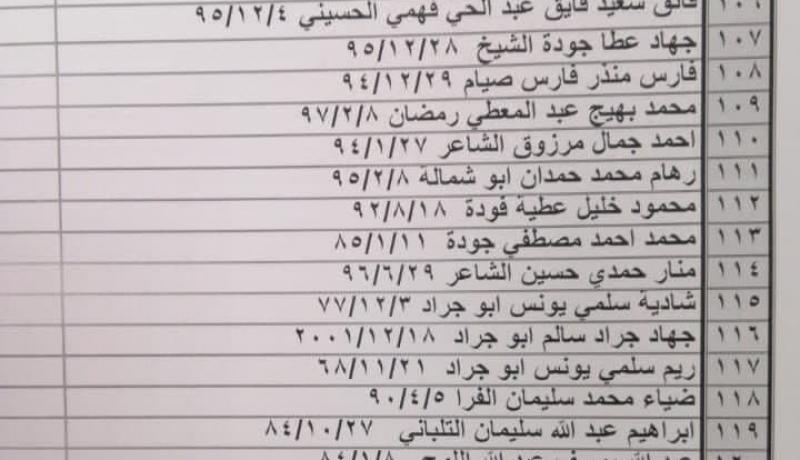 ١٠٦ فائق سعيد فايق عبد الحي فهمي الحسيني ٩٥/١٢/٤
١٠٧ جهاد عطا جودة الشيخ ٩٥/١٢/٢٨
١٠٨ فارس منذر فارس صيام ٩٤/١٢/٢٩
١٠٩ محمد بهيج عبد المعطي رمضان ٩٧/٢/٨
١١٠ احمد جمال مرزوق الشاعر ٩٤/١/٢٧
١١١ رهام محمد حمدان ابو شمالة ٩٥/٢/٨
١١٢ محمود خليل عطية فودة ٩٢/٨/١٨
١١٣ محمد احمد مصطفي جودة ٨٥/١/١١
١١٤ منار حمدي حسين الشاعر ٩٦/٦/٢٩
١١٥ شادية سلمي يونس ابو جراد ٧٧/١٢/٣
١١٦ جهاد جراد سالم ابو جراد ٢٠٠١/١٢/١٨
١١٧ ريم سلمي يونس ابو جراد ٦٨/١١/٢١
١١٨ ضياء محمد سليمان الفرا ٩٠/٤/٥
١١٩ ابراهيم عبد الله سليمان التلباني ٨٤/١٠/٢٧